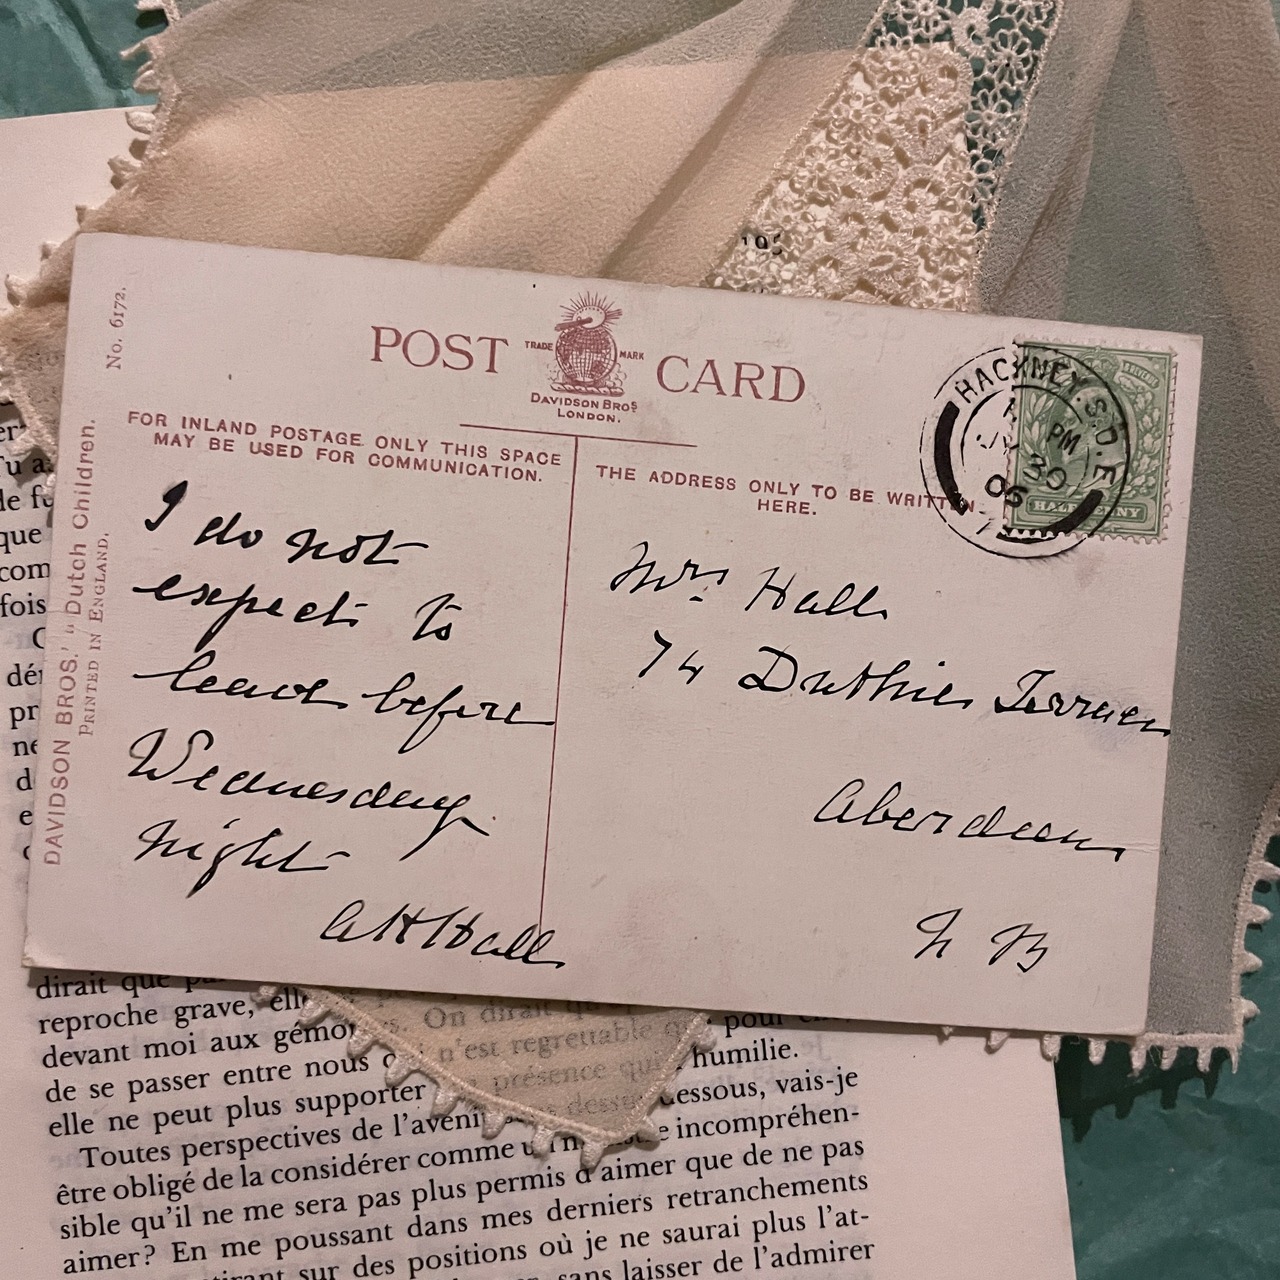 195
No. 6172.
DAVIDSON BROS.' "Dutch Children.
PRINTED IN ENGLAND.
POST CARD
TRADE MARK
DAVIDSON BROS.
LONDON.
FOR INLAND POSTAGE ONLY THIS SPACE
MAY BE USED FOR COMMUNICATION.
THE ADDRESS ONLY TO BE WRITTEN
HERE.
HACKNEY. S.O. E
PM
30
05
HALFPENNY
I do not
expect to
leave before
Wednesday
night
A H Hall
Mrs Hall
74 Duthie Terrace
Aberdeen
N B
er
Tu a
de fu
que
com
fois
C
dér
pr
ne
d
e
dirait que
reproche grave, elle
devant moi aux gémo s. On dirait pour
de se passer entre nous n'est regrettable humilie.
elle ne peut plus supporter présence dessous, vais-je
Toutes perspectives de l'aveni dessu incompréhen-
être obligé de la considérer comme un
sible qu'il ne me sera pas plus permis d'aimer que de ne pas
aimer? En me poussant dans mes derniers retranchements
sur des positions où je ne saurai plus l'at-
sans laisser de l'admirer